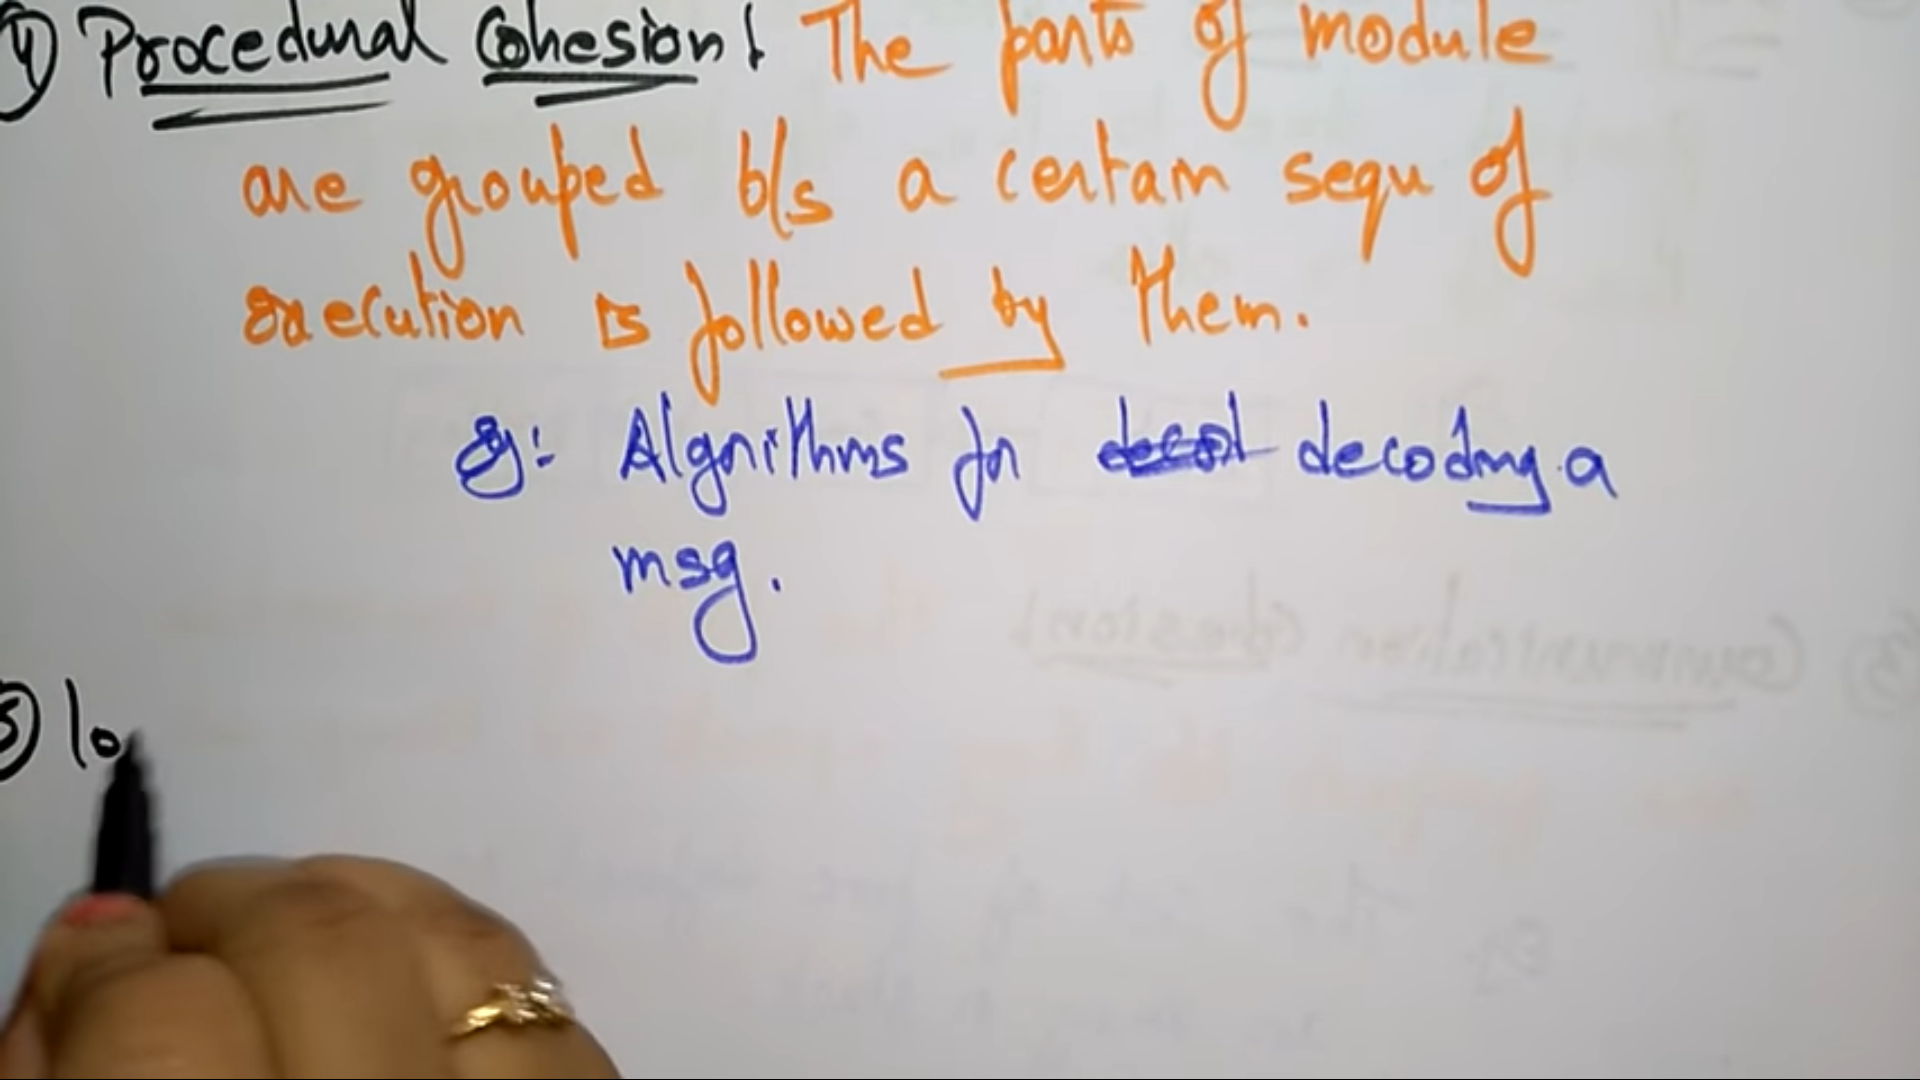 ④ Procedural Cohesion: The parts of module
are grouped b/s a certain sequ of
execution is followed by them.
Eg: Algorithms for decoding a
msg.
⑤ lo
③ Communication Cohesion: